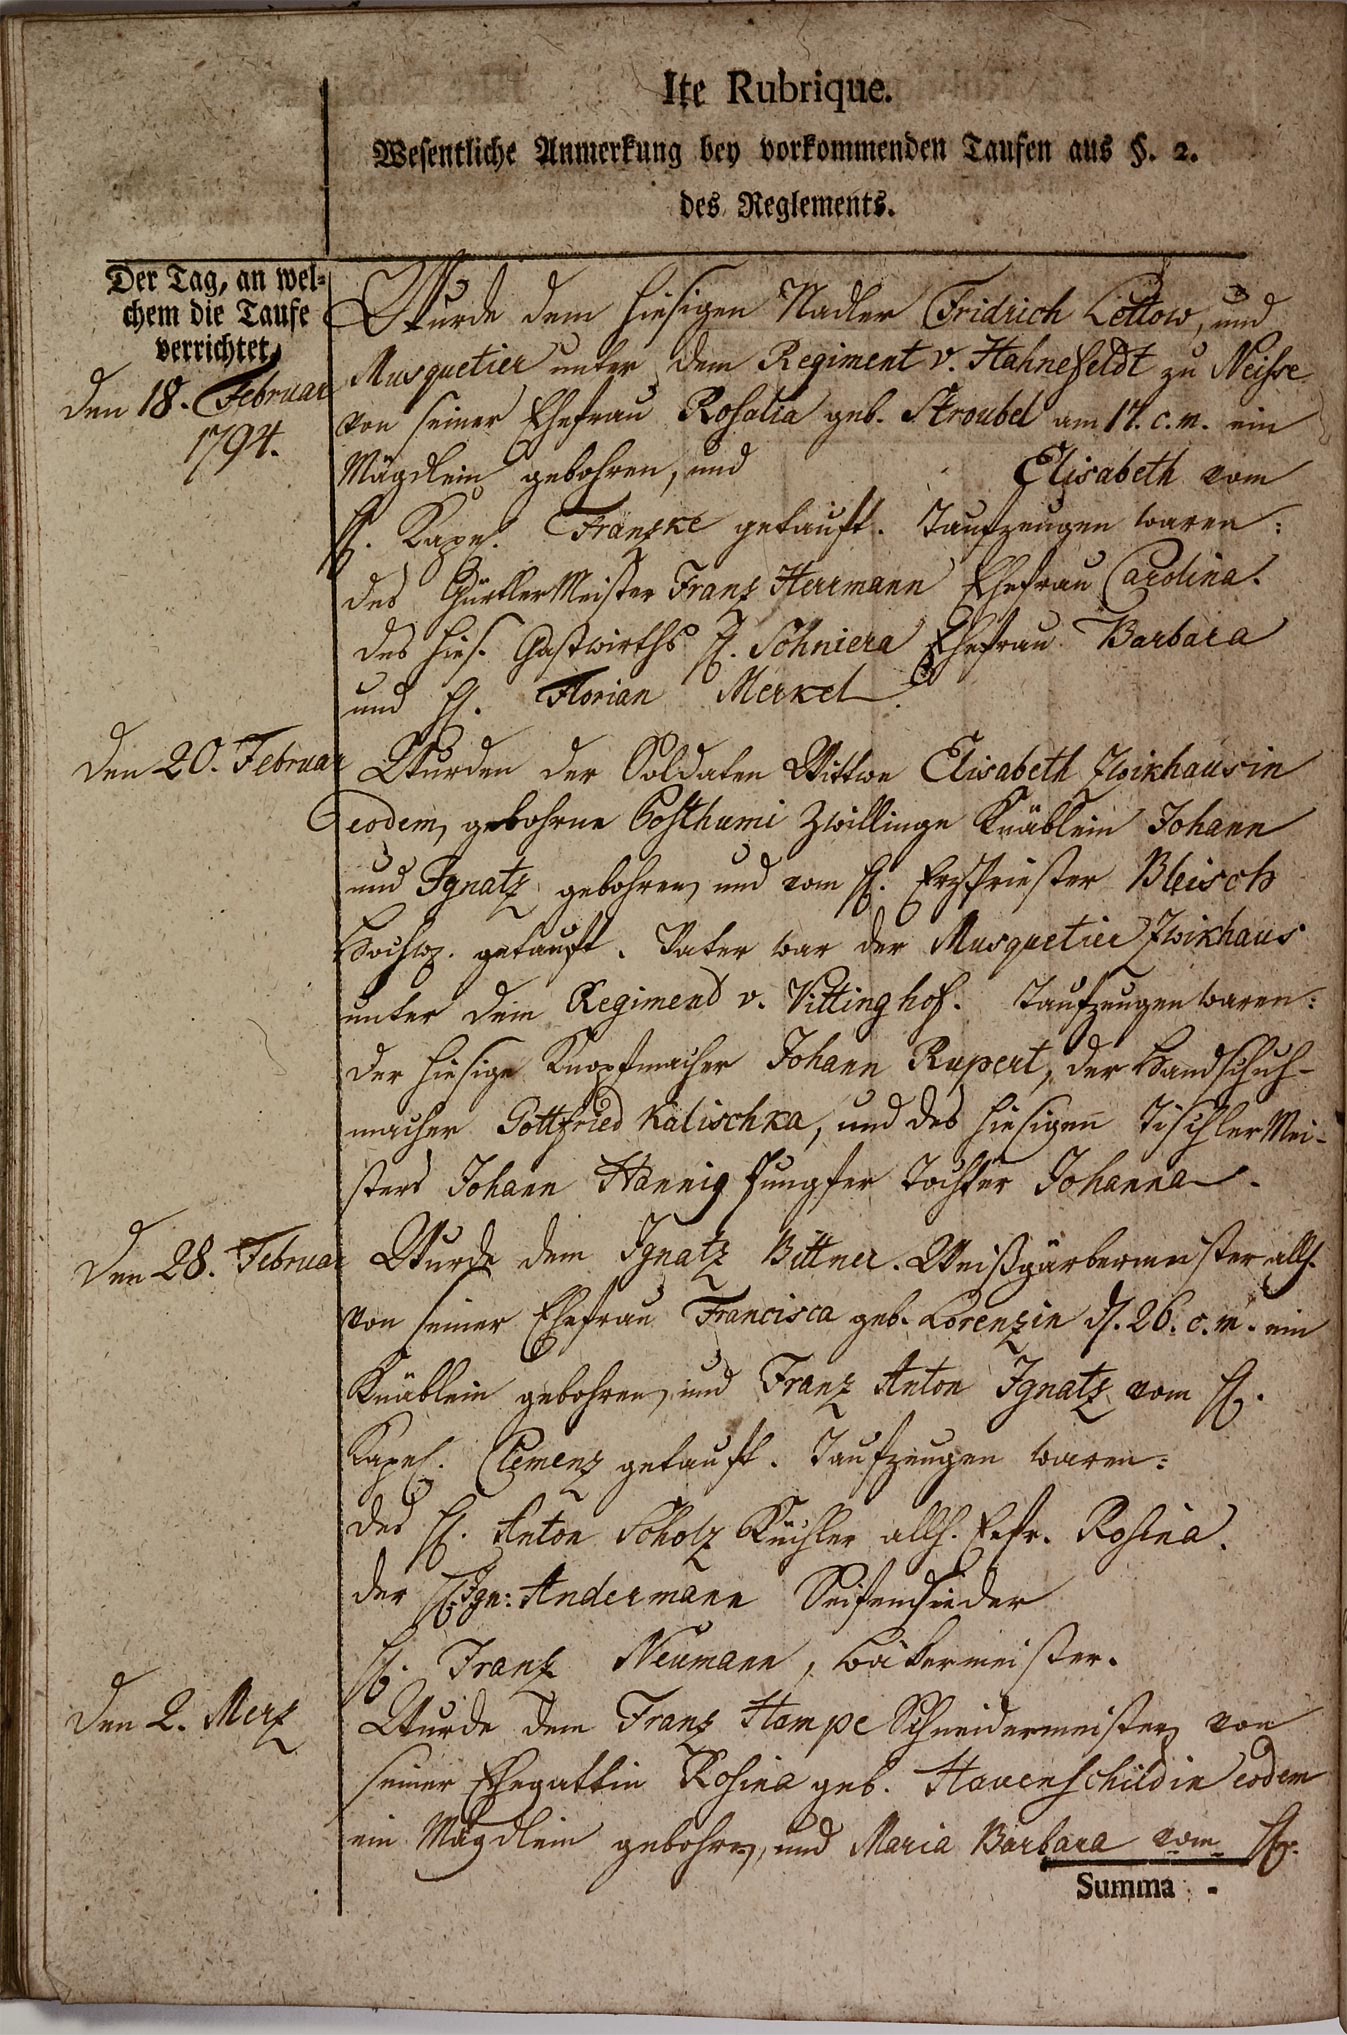 Ite Rubrique.
Wesentliche Anmerkung bey vorkommenden Taufen aus §. 2.
des Reglements.
Der Tag, an wel-
chem die Taufe
verrichtet,
den 18. Februar
1794.
Wurde dem hiesigen Nadler Fridrich Lettow, und
Musquetier unter dem Regiment v. Hahnefeldt zu Neisse
von seiner Ehefrau Rosalia geb. Stroubel am 17. c. m. ein
Mägdlein gebohren, und Elisabeth vom
H. Kapel. Franzke getauft. Taufzeugen waren:
des GürtlerMeister Franz Herrmann Ehefrau Carolina.
des hies. Gastwirths H. Schniera Ehefrau Barbara
und H. Florian Merkel.
den 20. Februar
Wurden der Soldaten Wittwe Elisabeth Zwikhausin
eodem, gebohrne Posthumi Zwillinge Knäblein Johann
und Ignatz gebohren, und vom H. ErzPriester Bleisch
Hochw. getauft. Vater war der Musquetier Zwikhaus
unter dem Regiment v. Vittinghof. Taufzeugen waren:
der hiesige Knopfmacher Johann Rupert, der Handschuh-
macher Gottfried Kalischka, und des hiesigen TischlerMei-
sters Johann Hannig Jungfer Tochter Johanna.
den 28. Februar
Wurde dem Ignatz Bittner. Weißgärbermeister allh.
von seiner Ehefrau Francisca geb. Lorenzin d. 26. c. m. ein
Knäblein gebohren, und Franz Anton Ignatz vom H.
Kapel. Clemenz getauft. Taufzeugen waren:
des H. Anton Scholz Küchler allh. Eefr. Rosina.
der H. Ign: Andermann Seifensieder
H. Franz Neumann, Bäkermeister.
den 2. Merz
Wurde dem Franz Hampe Schneidermeister, von
seiner Ehegattin Rosina geb. Havenschildin eodem
ein Mägdlein gebohren, und Maria Barbara vom H.
Summa -